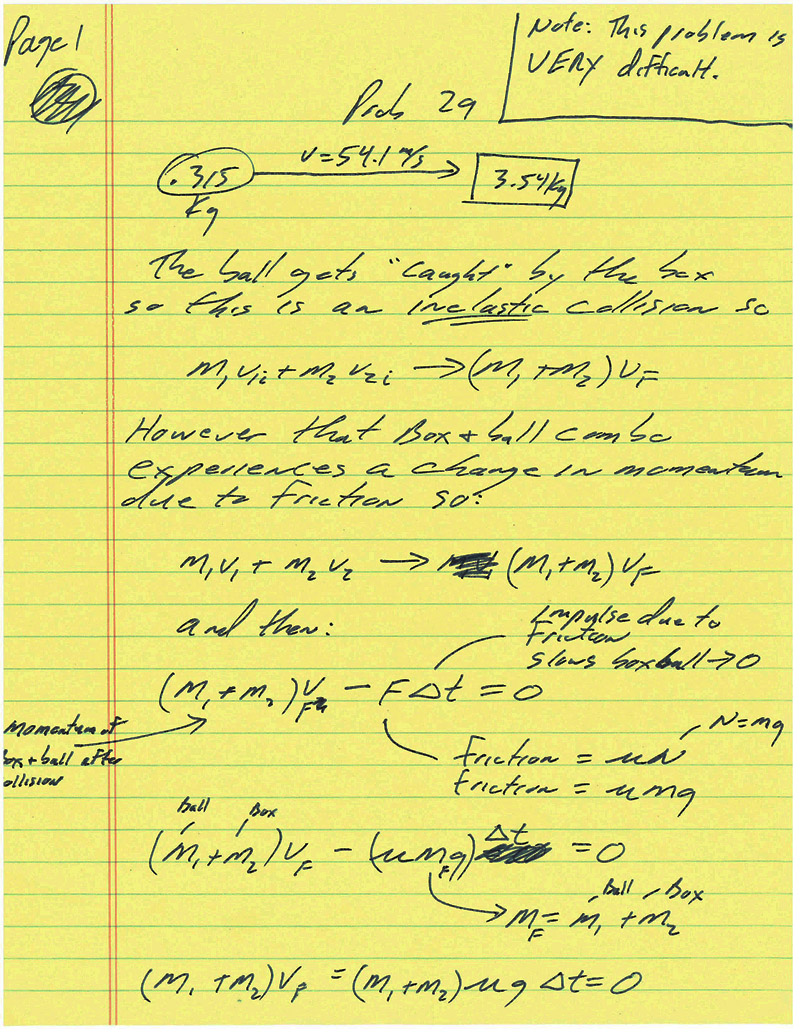 Page 1
Note: This problem is
VERY difficult.
Prob 29
.315
Kg
v=54.1 m/s
3.54Kg
The ball gets "caught" by the box
so this is an inelastic collision so
m₁v₁ᵢ + m₂v₂ᵢ → (m₁ + m₂) v_F
However that Box + ball combo
experiences a change in momentum
due to friction so:
m₁v₁ + m₂v₂ → (m₁+m₂) v_F
and then:
Impulse due to
Friction
slows boxball → 0
(m₁ + m₂) v_F - F Δt = 0
momentum of
box + ball after
ollision
N=mg
Friction = uN
Friction = umg
Ball Box
(m₁+m₂) v_F - (u m_F g) Δt = 0
Ball Box
m_F = m₁ + m₂
(m₁ + m₂) v_F = (m₁+m₂) ug Δt = 0